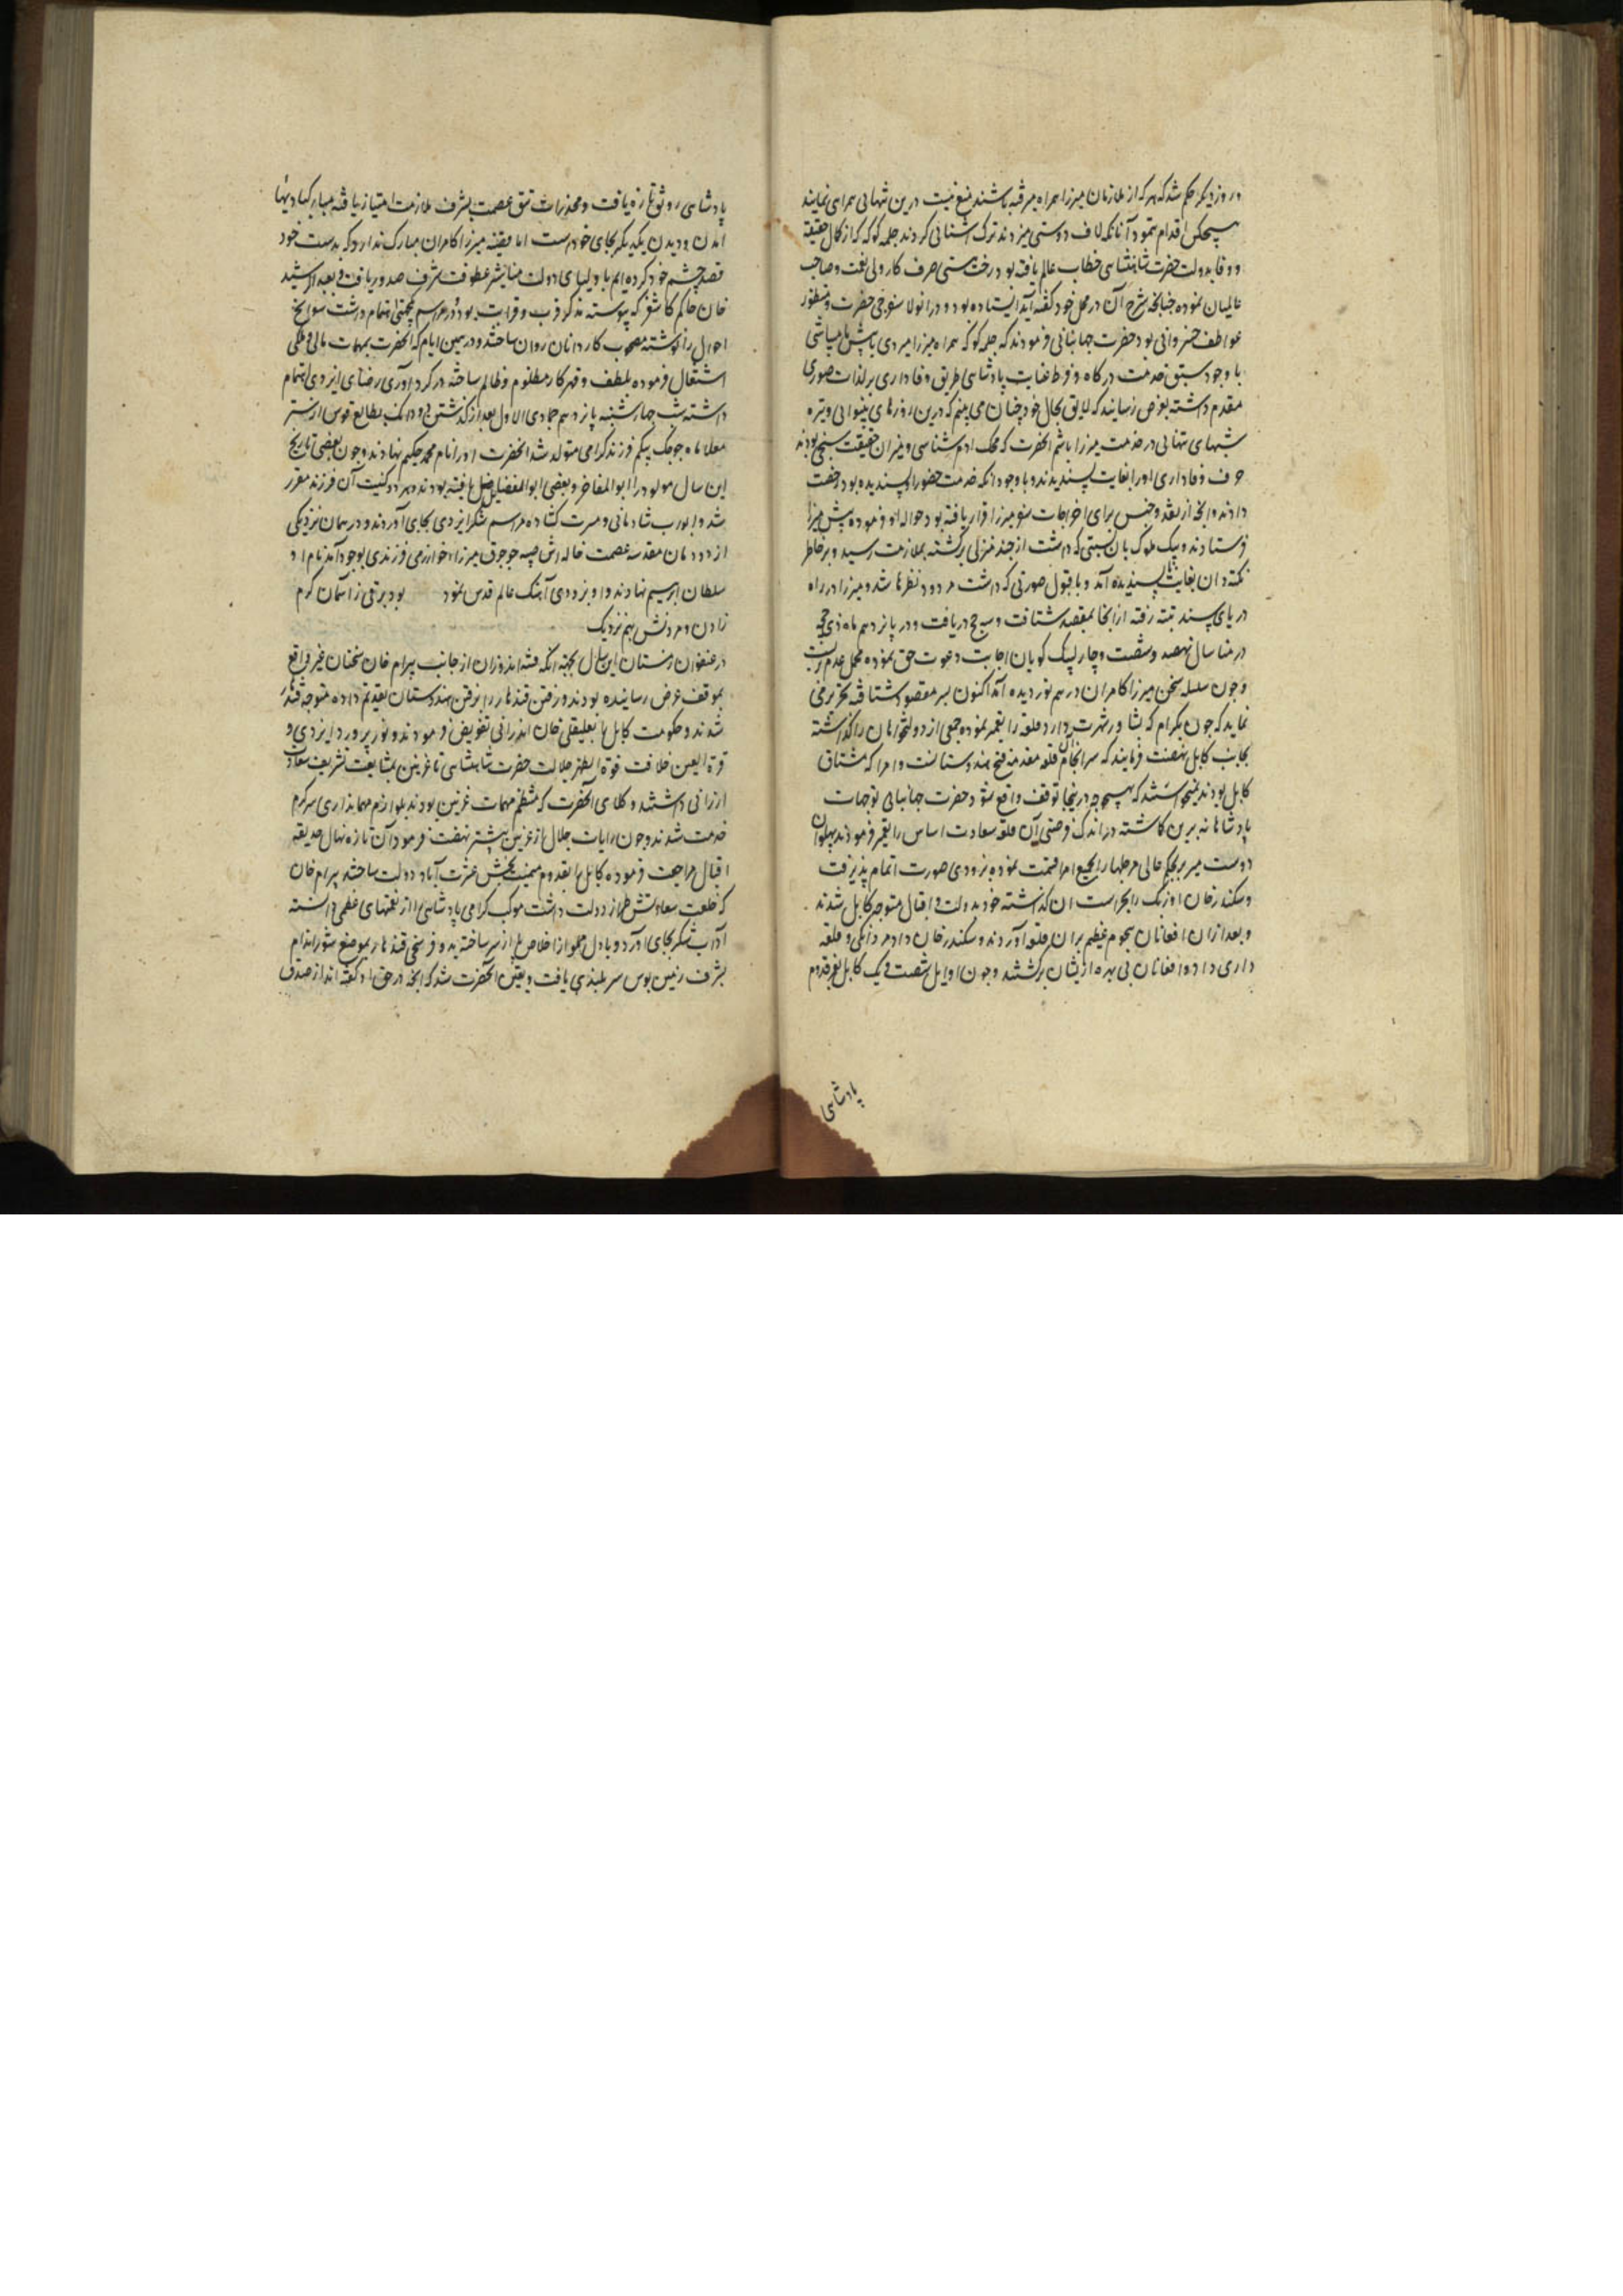 و روز دیگر حکم شد که هر که از ملازمان میرزا همراه میرفته باشند منع نیست درین تنهائی همراهی نمایند
هیچکس اقدام ننمود آنانکه لاف دوستی میزدند ترک آشنائی کردند چلمه کوکه که از کمال حقیقت
و وفا بدولت حضرت شاهنشاهی خطاب عالم یافته بود رخت هستی صرف کار ولی نعمت و صاحب
عالمیان نموده چنانچه شرح آن در محل خود گفته آید ایستاده بود و در آنولا سفرچی حضرت و منظور
عواطف خسروانی بود حضرت جهانبانی فرمودند که چلمه کوکه همراه میرزا میروی یا پیش ما میباشی
با وجود سبق خدمت درگاه و فرط عنایت پادشاهی طریق وفاداری بر لذات صوری
مقدم داشته بعرض رسانید که لایق بحال خود چنان می بینم که درین روزهای بینوائی و تیره
شبهای تنهائی در خدمت میرزا باشم آنحضرت که محک آدم شناسی و میزان حقیقت سنجی بودند
حرف وفاداری او را بغایت پسندیدند و با وجود آنکه خدمت حضور او پسندیده بود رخصت
دادند و آنچه از نقد و جنس برای اخراجات سفر میرزا قرار یافته بود حواله او فرموده پیش میرزا
فرستادند و بیک ملوک بآن نسبتی که داشت از چند منزلی برگشته بملازمت رسید و بر خاطر
نکته دان بغایت ناپسندیده آمد و با قبول صورتی که داشت مردود نظرها شد و میرزا در راه
دریای سند بتته رفته از آنجا بمقصد شتافت و سه حج دریافت و در یازدهم ماه ذی حجه
در منا سال نهصد و شصت و چار لبیک گویان اجابت دعوت حق نموده محمل عدم بست
و چون سلسله سخن میرزا کامران در هم نوردیده آمد اکنون بسر مقصود شتافته تحریر می
نماید که چون بکرام که بپشاور شهرت دارد قلعه را تعمیر نموده جمعی از دولتخواهان را گذاشته
بجانب کابل نهضت فرمایند که سرانجام آن قلعه مقدمه فتح هندوستانست و امرا که مشتاق
کابل بودند نمیخواستند که بهیچوجه درینجا توقف واقع شود حضرت جهانبانی توجهات
پادشاهانه برین گماشته در اندک فرصتی آن قلعه سعادت اساس را تعمیر فرمودند پهلوان
دوست میر بر بحکم عالی مرحلها را بجمیع امرا قسمت نموده بزودی صورت اتمام پذیرفت
و سکندر خان اوزبک را بحراست آن گذاشته خود بدولت و اقبال متوجه کابل شدند
و بعد ازان افغانان هجوم عظیم بران قلعه آوردند و سکندر خان داد مردانگی و قلعه
داری داد و افغانان بی بهره ازیشان برگشتند و چون اوایل شصت و یک کابل بفر قدوم
پادشاهی
پادشاهی رونق تازه یافت و مخدرات تتق عصمت بشرف ملازمت امتیاز یافته مبارکبادیها
آمدن و دیدن یکدیگر بجای خودست اما قضیه میرزا کامران مبارک ندارد که بدست خود
قصد چشم خود کرده ایم با ولیای دولت مناشیر عطوفت شرف صدور یافت و بعبد الرشید
خان حاکم کاشغر که پیوسته مذکر قرب و قرابت بود و در مراسم یکجهتی اهتمام داشت سوانح
احوال را نوشته مصحوب کاردانان روان ساختند و در همین ایام که آنحضرت بمهمات مالی و ملکی
اشتغال فرموده بلطف و قهر کار مظلوم و ظالم ساخته در گردآوری رضای ایزدی اهتمام
داشته شب چهارشنبه پانزدهم جمادی الاول بعد از گذشتن ده دانگ بطالع قوس از ستر
معلا ماه جوجک بیگم فرزند گرامی متولد شد آنحضرت او را نام محمد حکیم نهادند و چون بعضی تاریخ
این سال مولود را ابو المفاخر و بعضی ابو الفضایل یافته بودند هر دو کنیت آن فرزند مقرر
شد و ابواب شادمانی و مسرت گشاده مراسم شکر ایزدی بجای آوردند و در همان نزدیکی
از دودمان مقدسه عصمت خاله اش صبیه جوجوق میرزاء خوارزمی فرزندی بوجود آمد نام او
سلطان ابرهیم نهادند و او بزودی آهنگ عالم قدس نمود بود برقی ز آسمان کرم
زادن و مردنش بهم نزدیک
در عنفوان زمستان این سال بجهة آنکه فتنه اندوزان از جانب بیرام خان سخنان غیر واقع
بموقف عرض رسانیده بودند و رفتن قندهار را بر رفتن هندوستان تقدیم داده متوجه قندهار
شدند و حکومت کابل را بعلیقلی خان اندرابی تفویض فرمودند و نور پرورد ایزدی و
قرة العین خلافت قوة الظهر جلالت حضرت شاهنشاهی تا غزنین بمشایعت تشریف سعادت
ارزانی داشتند و وکلای آنحضرت که منتظم مهمات غزنین بودند بلوازم مهمانداری سرگرم
خدمت شدند و چون رایات جلال از غزنین پیشتر نهضت فرمود آن تازه نهال حدیقه
اقبال مراجعت فرموده کابل را بقدوم میمنت بخش عشرت آباد دولت ساختند بیرام خان
که خلعت سعادتش طراز دولت داشت موکب گرامی پادشاهی را از نعمتهای عظمی دانسته
آداب شکر بجای آورد و با دل مملو از اخلاص پا از سر ساخته بده فرسخی قندهار بموضع شوراندام
بشرف زمین بوس سربلندی یافت و یقین آنحضرت شد که آنچه در حق او گفته اند از صدق